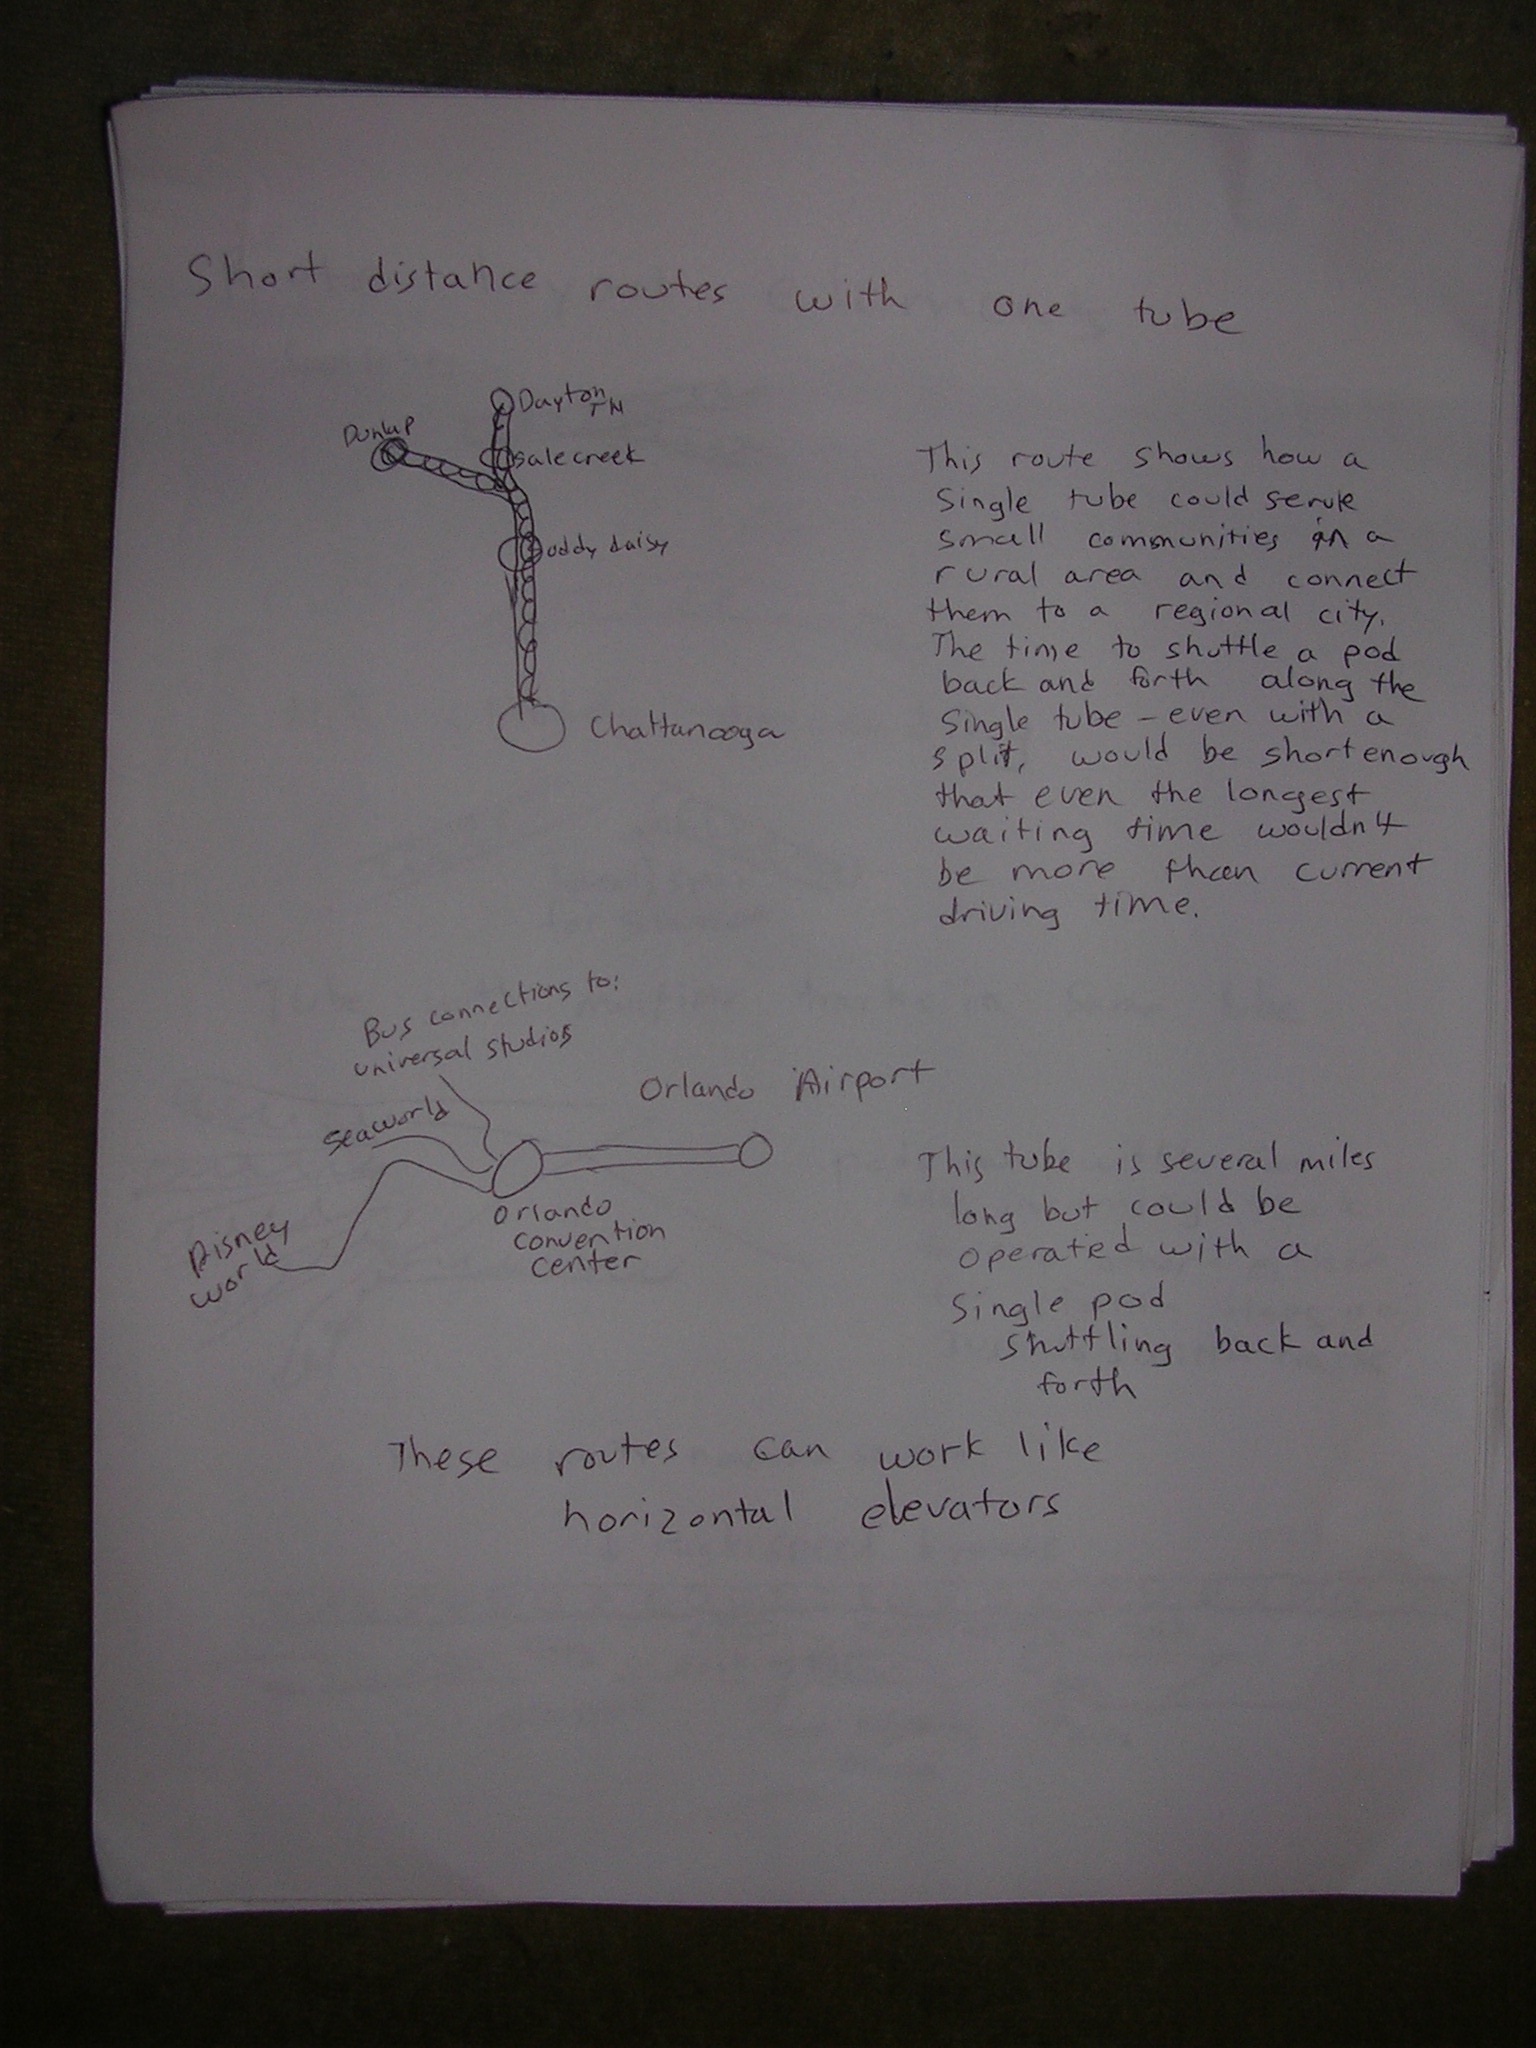 Short distance routes with one tube
Dayton
TN
Dunlap
sale creek
soddy daisy
Chattanooga
This route shows how a
single tube could serve
small communities in a
rural area and connect
them to a regional city.
The time to shuttle a pod
back and forth along the
single tube - even with a
split, would be short enough
that even the longest
waiting time wouldn't
be more than current
driving time.
Bus connections to:
universal studios
seaworld
Disney
world
Orlando Airport
Orlando
convention
center
This tube is several miles
long but could be
operated with a
single pod
shuttling back and
forth
These routes can work like
horizontal elevators